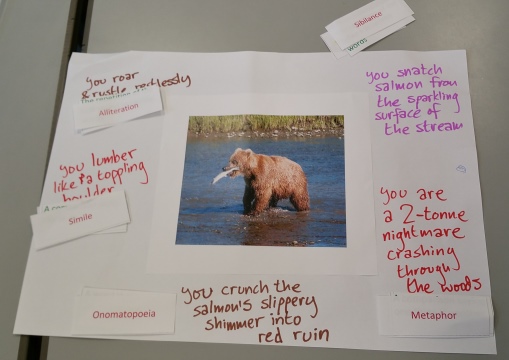 Sibilance
words
you roar
& rustle restlessly
The repetition of
Alliteration
you snatch
salmon from
the sparkling
surface of
the stream
you lumber
like a toppling
boulder
Simile
you are
a 2-tonne
nightmare
crashing
through
the woods
Metaphor
you crunch the
salmon's slippery
shimmer into
red ruin
Onomatopoeia